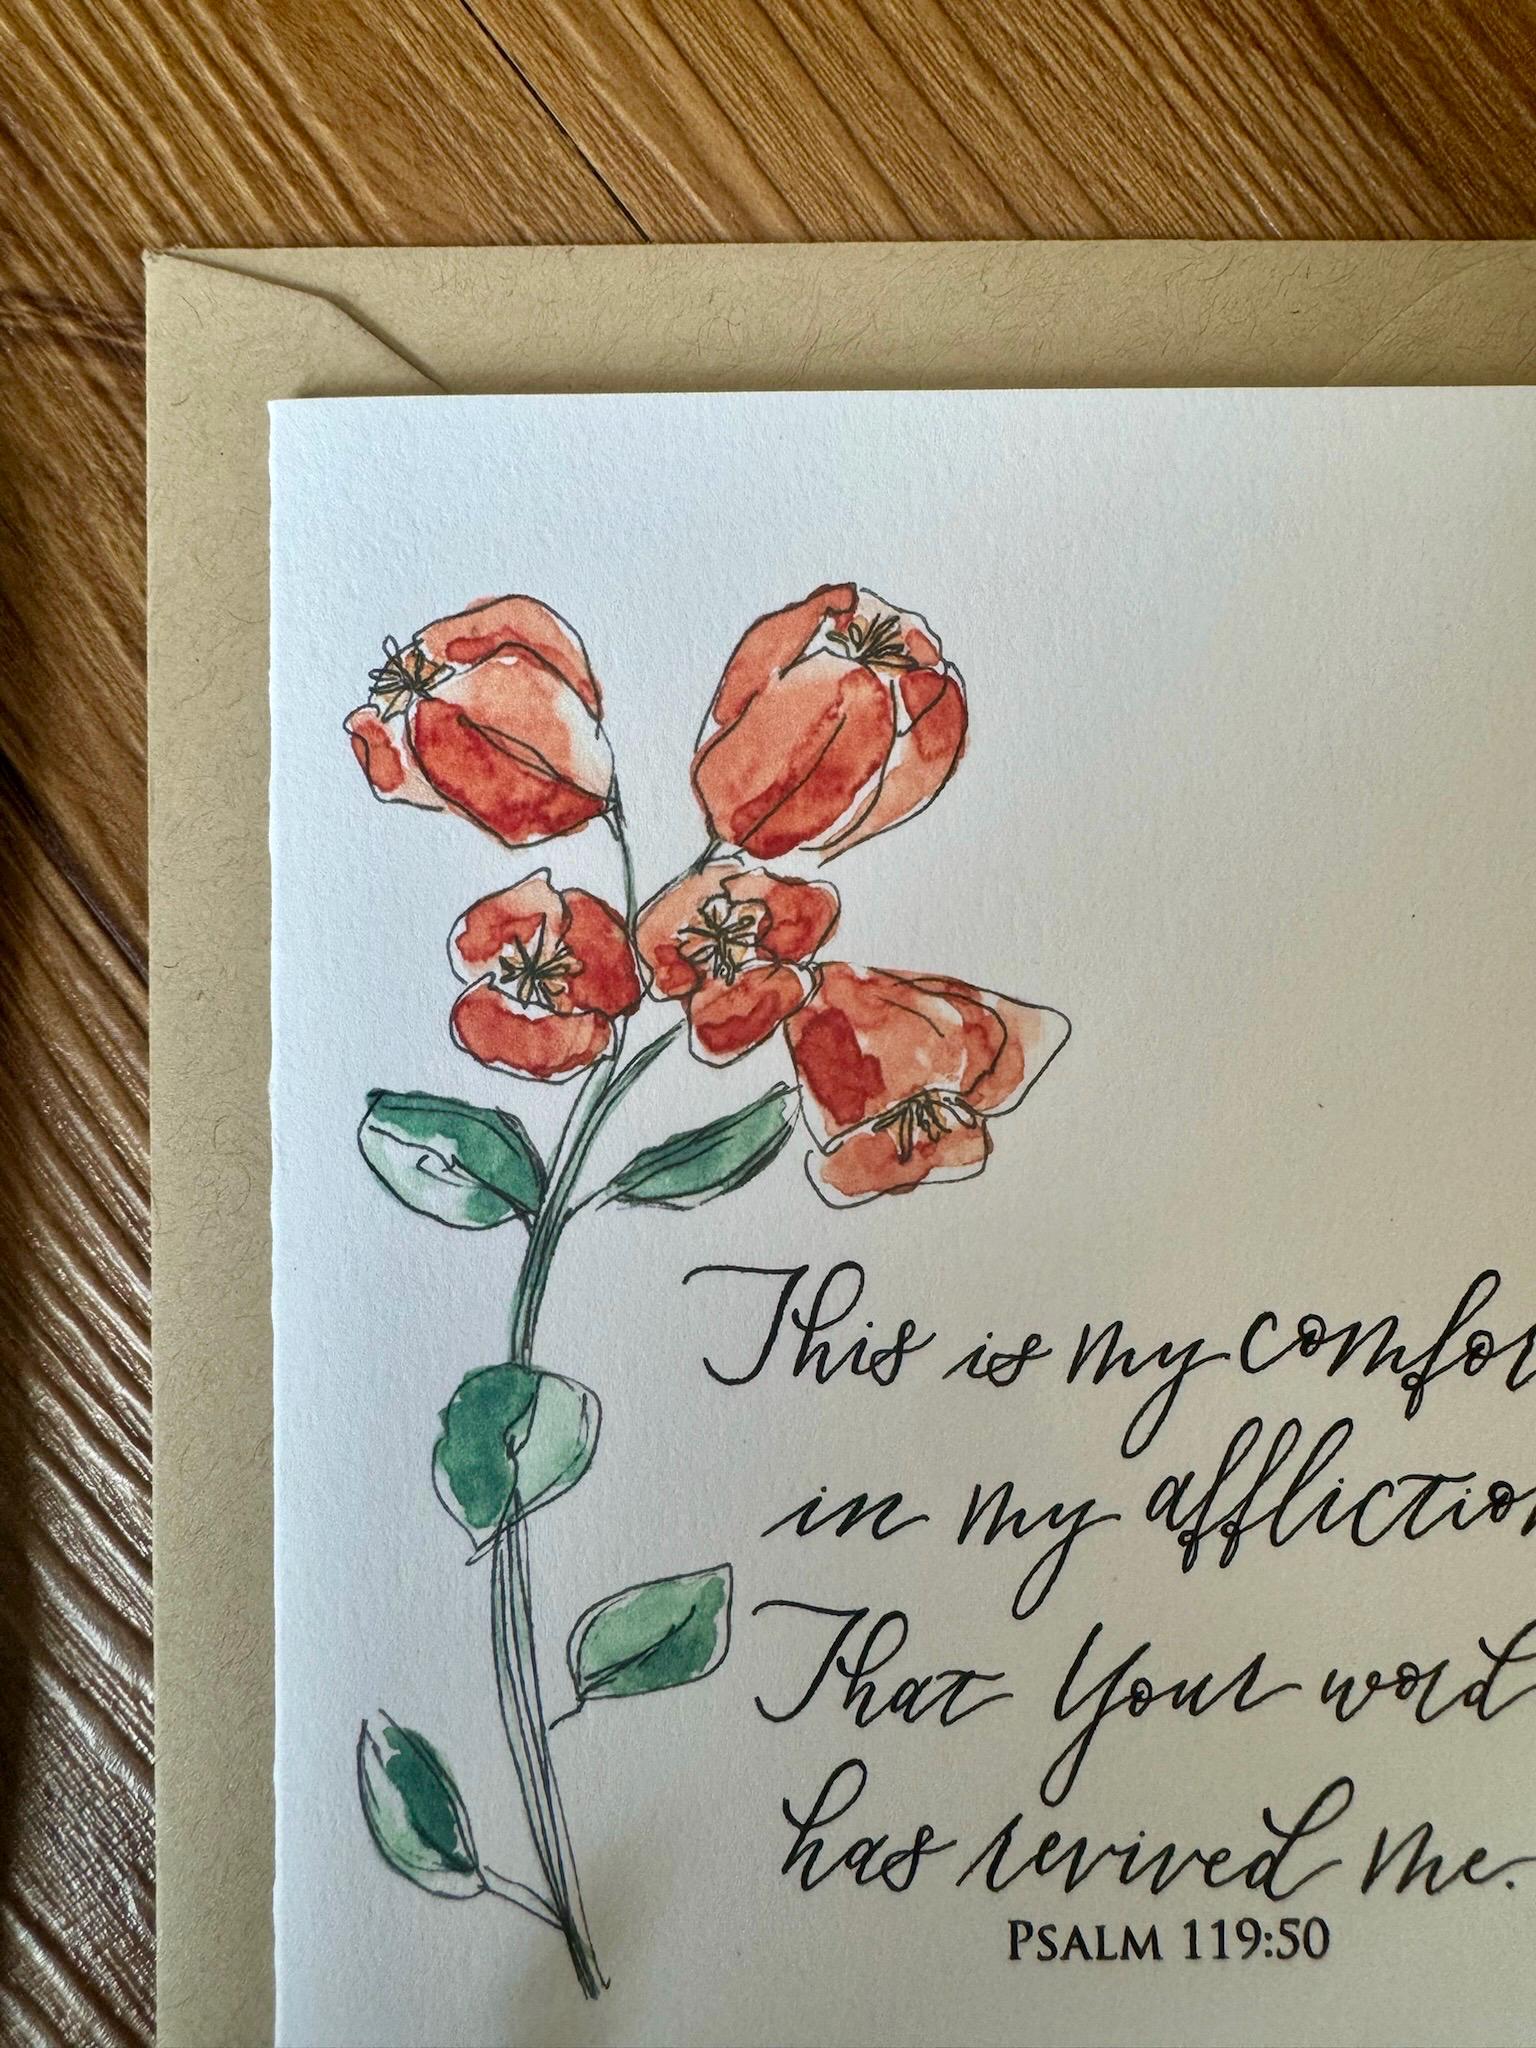 This is my comfor
in my affliction
That Your word
has revived me.
PSALM 119:50